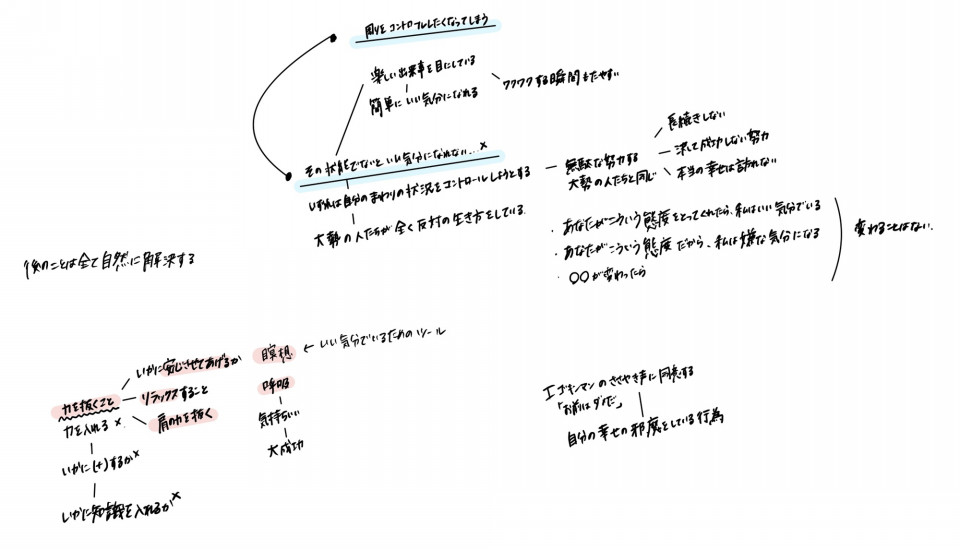 周りをコントロールしたくなってしまう
楽しい出来事を目にしている
簡単にいい気分になれる
ワクワクする瞬間もたやすい
その状態でないといい気分になれない...×
いずれは自分のまわりの状況をコントロールしようとする
大勢の人たちが全く反対の生き方をしている
無駄な努力する
大勢の人たちと同じ
長続きしない
決して成功しない努力
本当の幸せは訪れない
・あなたがこういう態度をとってくれたら、私はいい気分でいる
・あなたがこういう態度だから、私は嫌な気分になる
・〇〇が変わったら
変わることはない.
後のことは全て自然に解決する
いかに安心させてあげるか
力を抜くこと
リラックスすること
肩の力を抜く
力を入れる ×
いかに(+)するか×
いかに知識を入れるか×
瞑想
← いい気分でいるためのツール
呼吸
気持ちいい
大成功
エゴキンマンのささやき声に同意する
「お前はダメだ」
自分の幸せの邪魔をしている行為